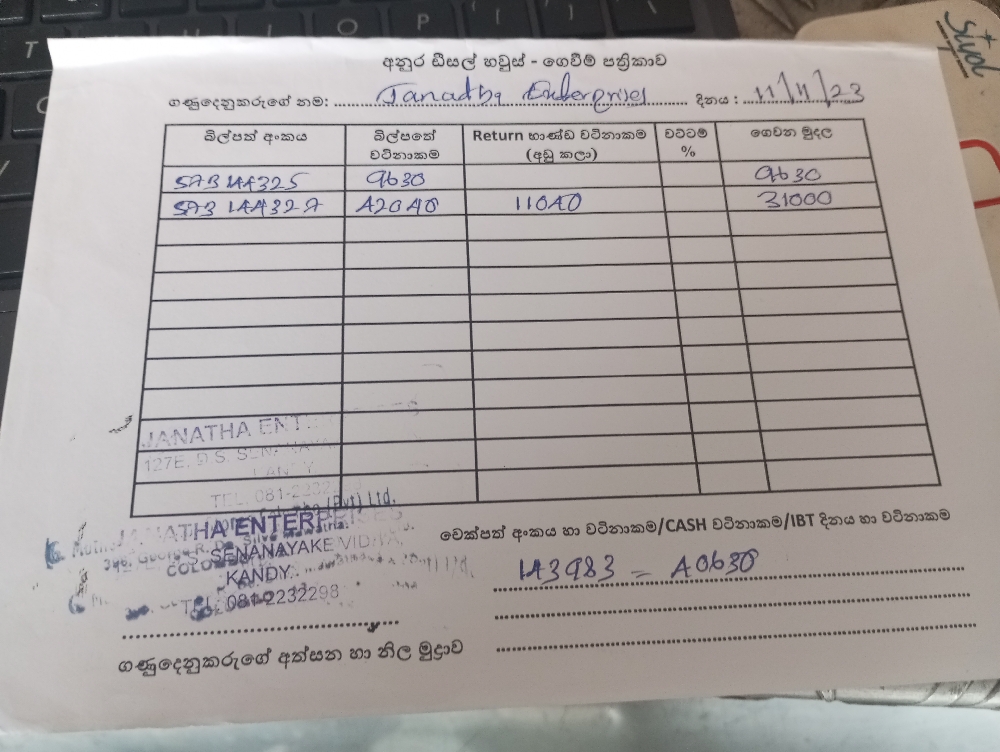 අනුර ඩීසල් හවුස් - ගෙවීම් පත්‍රිකාව
ගණුදෙනුකරුගේ නම: Janatha Enterprises දිනය : 11/11/23
බිල්පත් අංකය බිල්පතේ වටිනාකම Return භාණ්ඩ වටිනාකම (අඩු කලා) වට්ටම් % ගෙවන මුදල
SAB 144325 9630 9630
SAB 144327 42040 11040 31000
JANATHA ENT
127E, D.S.
TEL: 081-2232
JANATHA ENTERPRISES
SENANAYAKE VIDIYA,
KANDY.
TEL: 081-2232298
චෙක්පත් අංකය හා වටිනාකම/CASH වටිනාකම/IBT දිනය හා වටිනාකම
143983 = 40630
ගණුදෙනුකරුගේ අත්සන හා නිල මුද්‍රාව